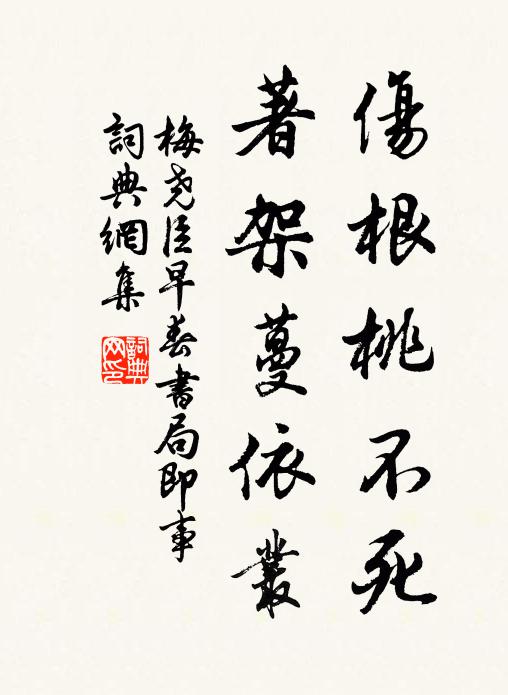 傷根桃不死
著架蔓依叢
梅尧臣早春書局即事
詞典網集
詞典网印